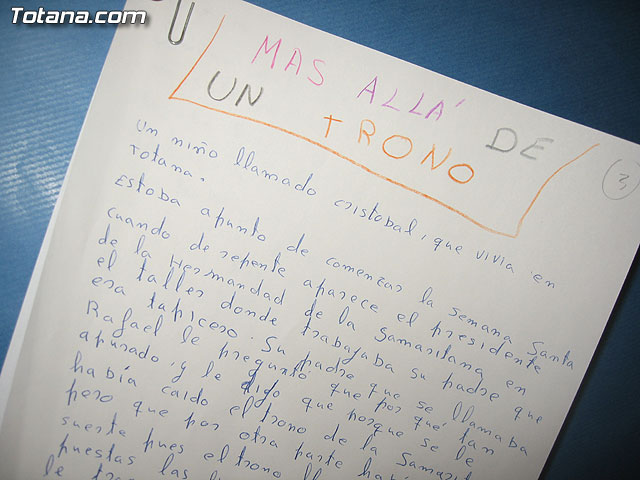 Totana.com
MAS ALLÁ DE
UN TRONO
3
Un niño llamado cristobal, que vivia en
Totana.
Estoba apunto de comenzar la semana santa
cuando de repente aparece el presidente
de la Hermandad de la Samaritana en
el taller donde trabajaba su padre que
era tapicero. Su padre que se llamaba
Rafael le preguntó que por qué tan
apurado, y le dijo que porque se le
había caido el trono de la Samarit
pero que por otra parte hab
suerte pues el trono ll
puestas las
le tra